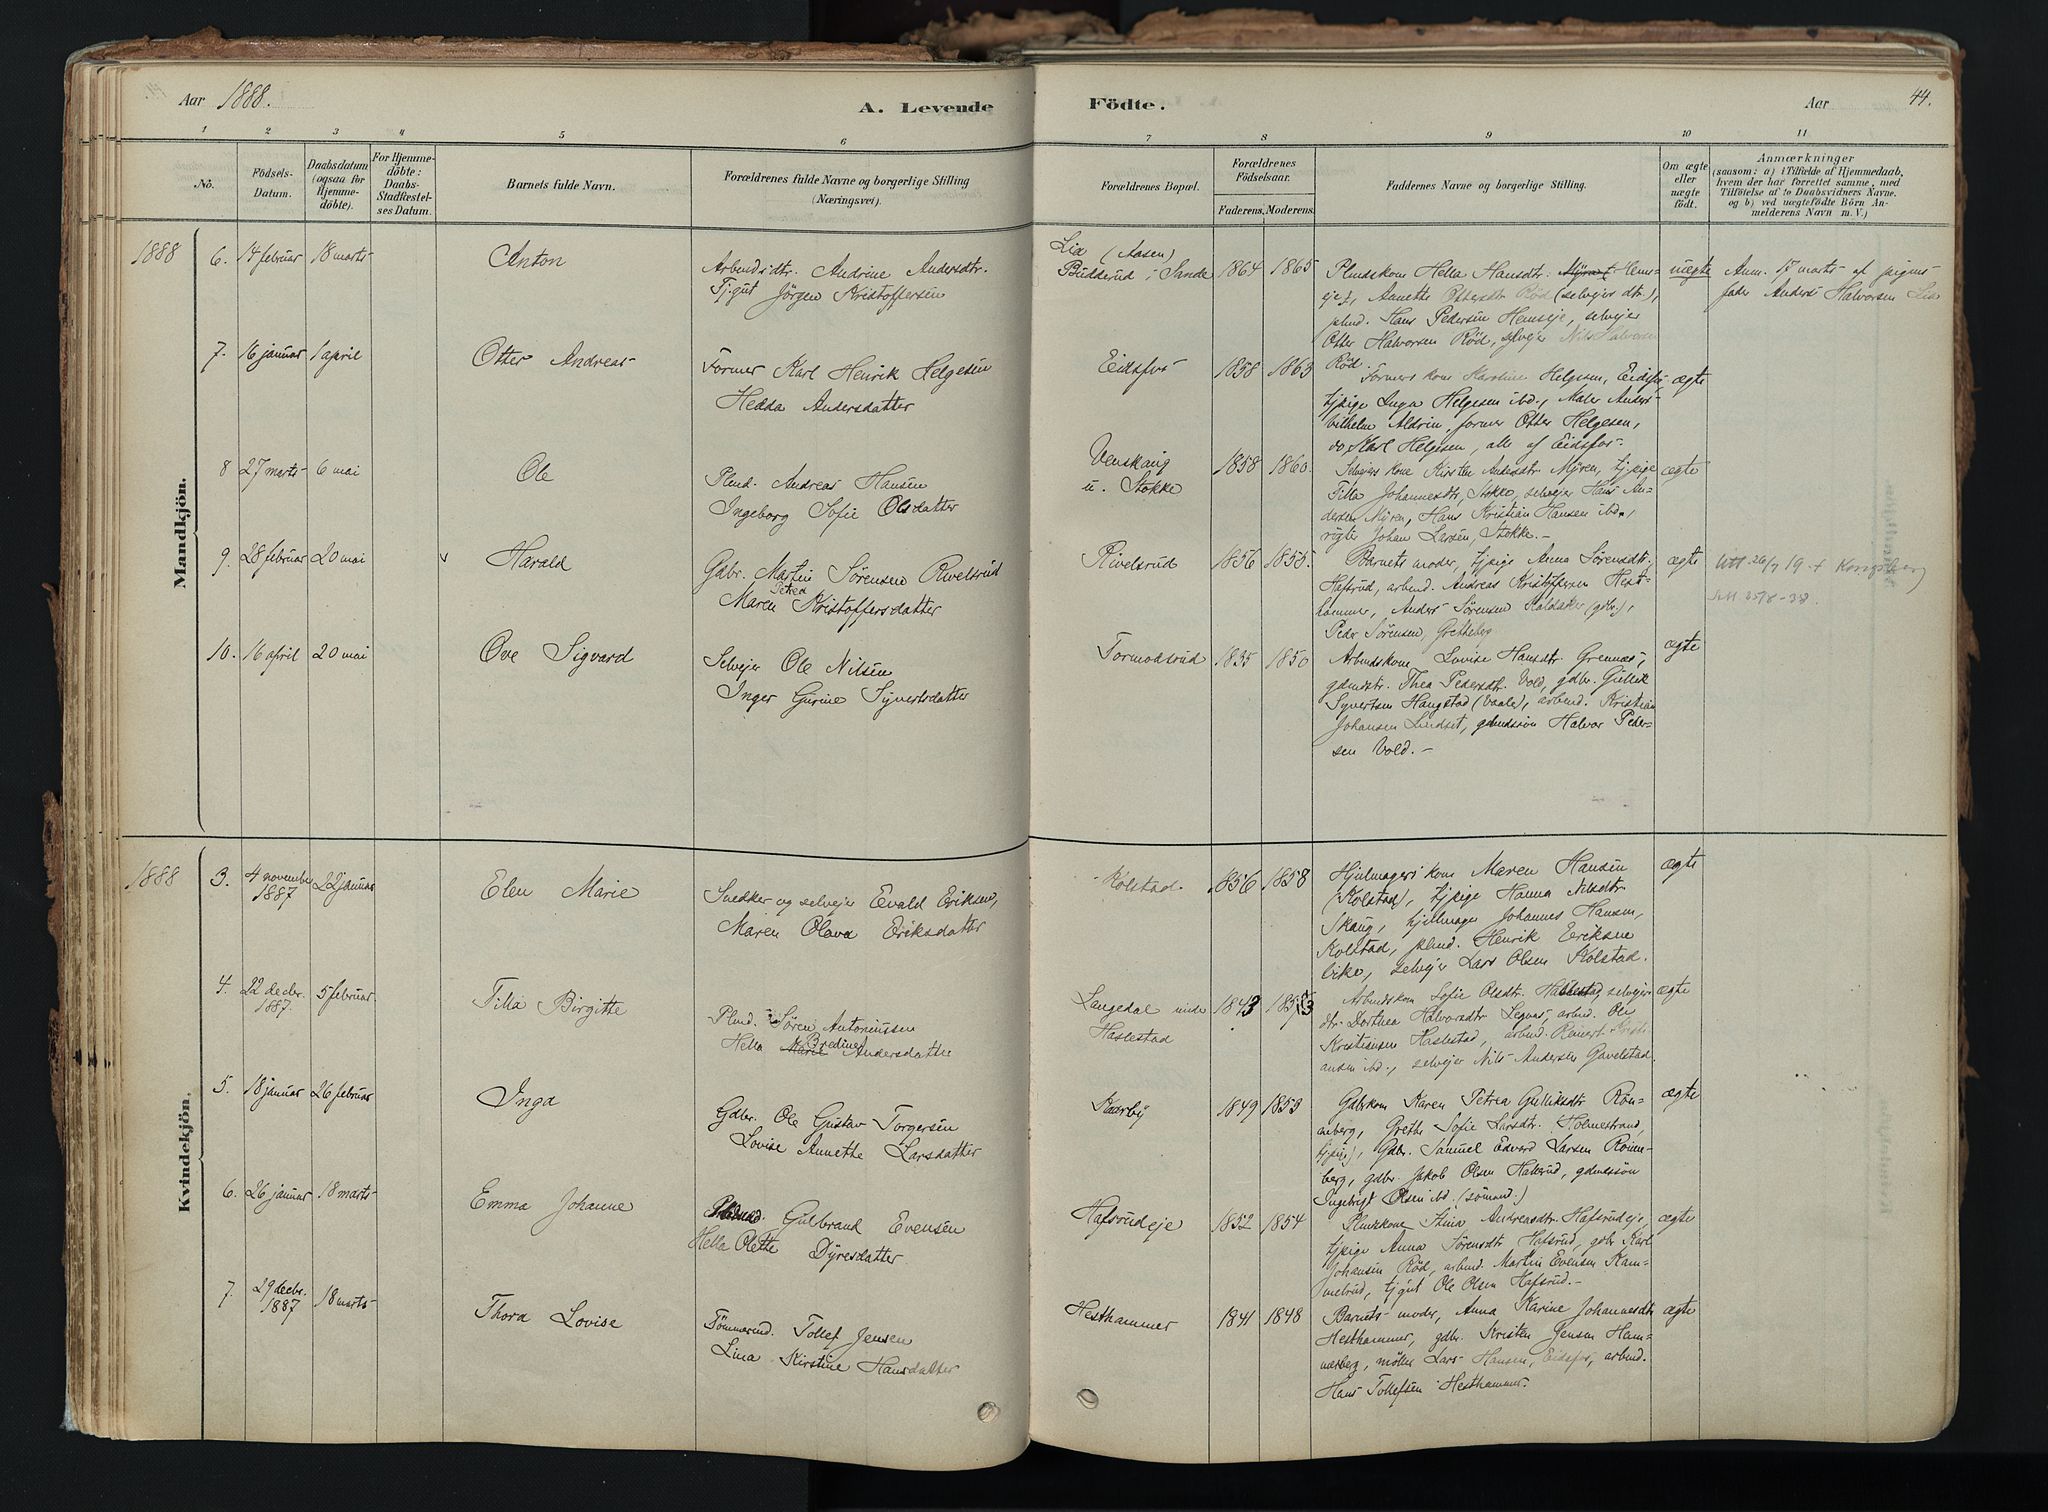 Aar 1888.
A. Levende
Födte.
Aar
44.
1 2 3 4 5 6 7 8 9 10 11
No.
Födsels-
Datum.
Daabsdatum
(ogsaa for
Hjemme-
döbte).
For Hjemme-
döbte:
Daabs-
Stadfæstel-
ses Datum.
Barnets fulde Navn.
Forældrenes fulde Navne og borgerlige Stilling
(Næringsvei).
Forældrenes Bopæl.
Forældrenes
Födselsaar.
Faderens. Moderens.
Faddernes Navne og borgerlige Stilling.
Om ægte
eller
uægte
födt.
Anmærkninger
(saasom: a) i Tilfælde af Hjemmedaab,
hvem der har forrettet samme, med
Tilföielse af to Daabsvidners Navne.
og b) ved uægtefödte Börn An-
melderens Navn m. V.)
Mandkjön.
1888 6. 14 februar 18 marts
Anton
Arbeidsdtr. Andrine Andersdtr.
Tj.gut Jörgen Kristoffersen
Lia (Aasen)
Budderud i Sande
1864 1865
Plmdskone Hella Hansdtr. Myra (Hems-
eje), Annette Ottersdtr Röd (selvejer dtr.),
plmd. Hans Pedersen Hemseje, selvejer
Otter Halvorsen Röd, selvejer Nils Halvorsen
Röd.
uægte
Anm. 17 marts af pigens
fader Anders Halvorsen Lia
7. 16 januar 1 april
Otter Andreas
Former Karl Henrik Helgesen
Hedda Andersdatter
Eidsfos
1858 1863
Formers kone Karoline Helgesen, Eidsfos,
tj.pige Inga Helgesen ibd., Maler Anders
Vilhelm Aldrin, former Otter Helgesen,
do Karl Helgesen, alle af Eidsfos.
ægte
8 27 marts 6 mai
Ole
Plmd. Andreas Hansen
Ingeborg Sofie Olsdatter
Venskaug
u. Stokke
1858 1860.
Selvejers kone Kirsten Andersdtr. Myren, tj.pige
Tilla Johannesdtr. Stokke, selvejer Hans An-
dersen Myren, Hans Kristian Hansen ibd.,
rögter Johan Larsen, Stokke.
ægte
9. 28 februar 20 mai
Harald
Gdbr. Martin Sörensen Rivelsrud
Petrea
Maren Kristoffersdatter
Rivelsrud
1856 1855.
Barnets moder, tj.pige Anna Sörensdtr.
Hafsrud, arbeid. Andreas Kristoffersen Hest-
hammer, Anders Sörensen Kaldaker (gdbr.),
Peder Sörensen, Gretteberg
ægte
Utt. 26/7 19. + Kongsberg
10. 16 april 20 mai
Ove Sigvard
Selvejer Ole Nilsen
Inger Gurine Syvertsdatter
Tormodsrud
1835 1850
Arbeidskone Lovise Hansdtr. Grennes,
gdmdsdtr. Thea Pedersdtr. Vold, gdbr. Gullik
Syvertsen Haugstad (Vaale), arbeid. Kristian
Johansen Lindset, gdmdssön Halvor Peder-
sen Vold.
ægte
Kvindekjön.
1888 3. 4 november
1887 22 januar
Elen Marie
Snedker og selvejer Evald Eriksen,
Maren Olava Eriksdatter
Kolstad.
1856 1858
Hjulmagers kone Maren Hansen
(Kolstad), tj.pige Hanna Nilsdtr.
Skaug, hjulmager Johannes Hansen,
Kolstad, plmd. Henrik Eriksen
Vike, selvejer Lars Olsen Kolstad.
ægte
4. 22 decbr.
1887. 5 februar
Tilla Birgitte
Plmd. Sören Antoniussen
Bredine
Hella Marie Andersdatter
Langedal under
Haslestad
1843 1853
Arbeidskone Sofie Olsdtr. Haslestad, selvejer
dtr. Dorthea Halvorsdtr Legnas, arbeid. Ole
Kristiansen Haslestad, arbeid. Reinert Kristi-
ansen ibd., selvejer Nils Andersen Gavelstad.
ægte
5. 18 januar 26 februar
Inga
Gdbr. Ole Gustav Torgersen
Lovise Annette Larsdatter
Kaarby
1849 1853
Gdbrkone Karen Petrea Gulliksdtr Rön-
neberg, Grethe Sofie Larsdtr. Holmestrand,
tj.pige), Gdbr. Samuel Edvard Larsen Rönne-
berg, gdbr. Jakob Olsen Hakerud, gdmdssön
Ingebrigt Olsen ibd. (sömand.)
ægte
6. 26 januar 18 marts
Emma Johanne
Plmd. Gulbrand Evensen
Hella Olette Dyresdatter
Hafsrudeje
1852 1854
Plmdskone Stina Andreasdtr. Hafsrudeje,
tj.pige Anna Sörensdtr Hafsrud, gdbr Karl
Johansen Röd, arbeid. Martin Evensen Kam-
melrud, tj.gut Ole Olsen Hafsrud.
ægte
7. 29 decbr.
1887 18 marts
Thora Lovise
Tömmermd. Tollef Jensen
Lina Kirstine Hansdatter
Hesthammer
1841 1848
Barnets moder, Anna Karine Johannesdtr
Hesthammer, gdbr. Kristen Jensen Ham-
nerberg, möller Lars Hansen, Eidsfos, arbeid.
Hans Tollefsen Hesthammer.
ægte